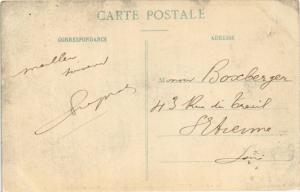 CARTE POSTALE
CORRESPONDANCE
ADRESSE
meilleur
souvenir
Boxberger
43 Rue du Treuil
St Etienne
Loire